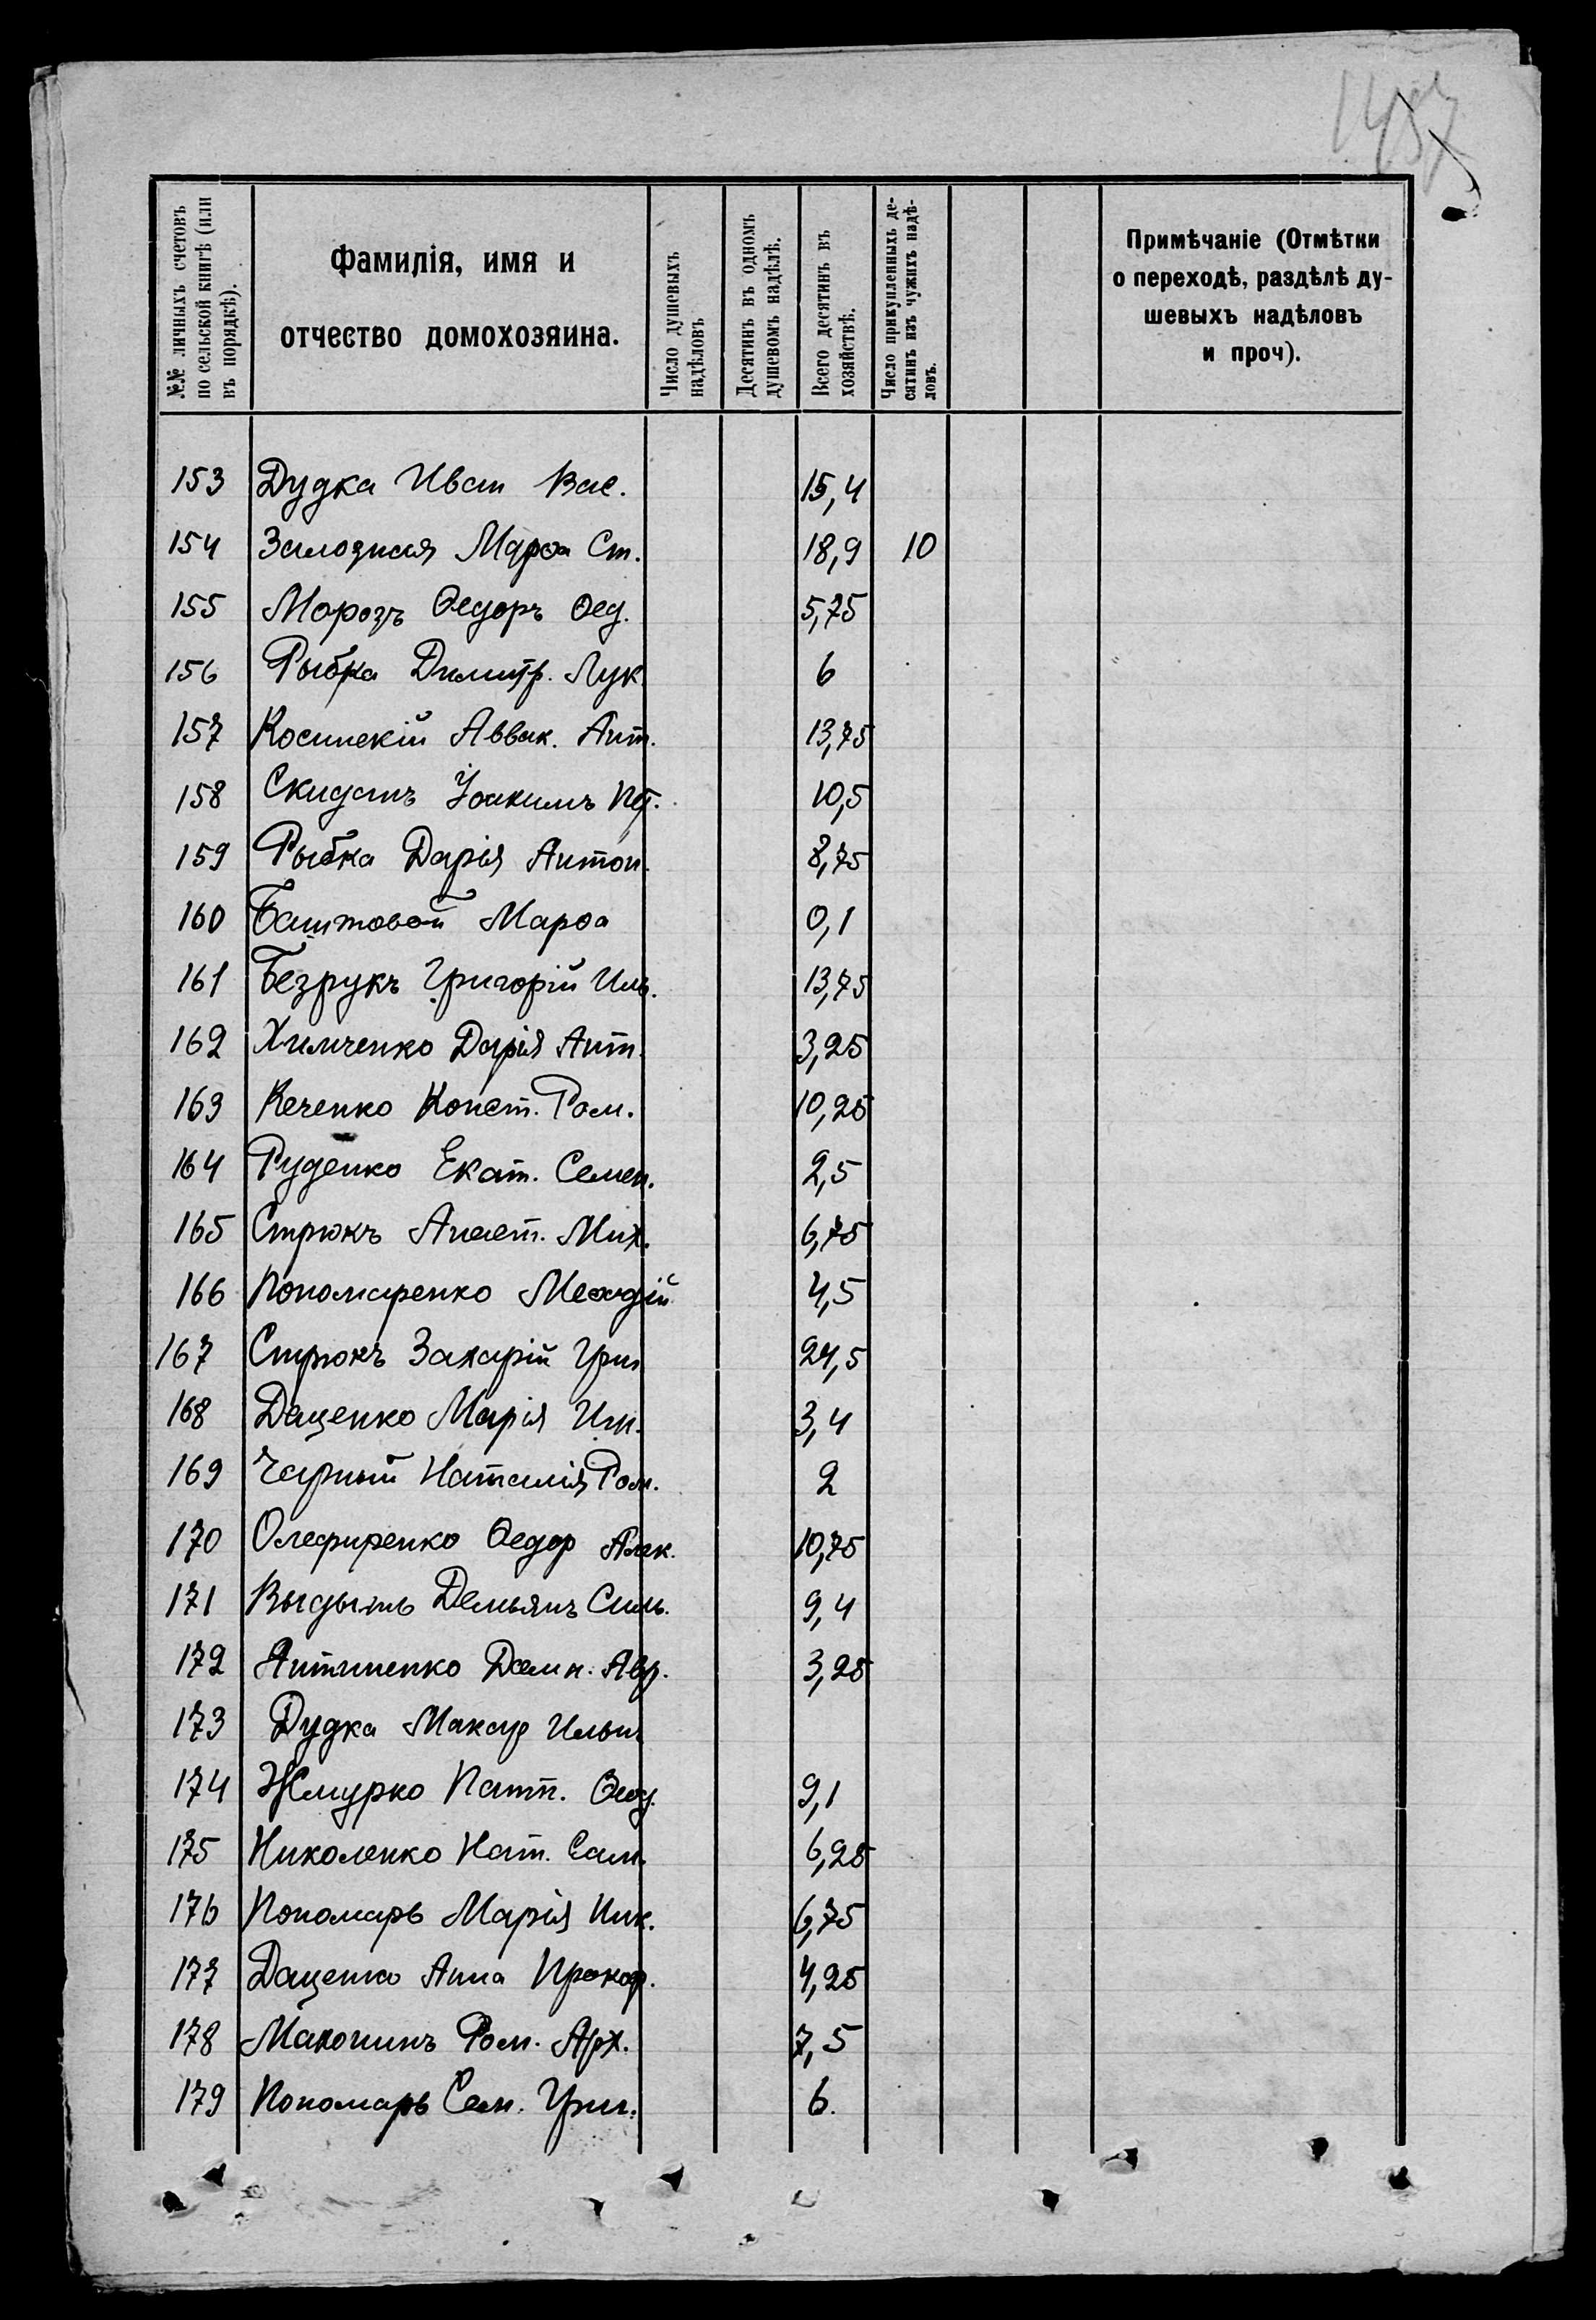 №№ личныхъ счетовъ по сельской книгѣ (или въ порядкѣ).
Фамилія, имя и отчество домохозяина.
Число душевыхъ надѣловъ
Десятинъ въ одномъ душевомъ надѣлѣ.
Всего десятинъ въ хозяйствѣ.
Число прикупленныхъ десятинъ изъ чужихъ надѣловъ.
Примѣчаніе (Отмѣтки о переходѣ, раздѣлѣ душевыхъ надѣловъ и проч).
153 Дудка Иван Вас. 15,4
154 Залозная Марѳа Ст. 18,9 10
155 Морозъ Ѳедоръ Ѳед. 5,75
156 Рыбка Димитр. Лук. 6
157 Косинскій Аввак. Ант. 13,75
158 Скиданъ Іоакимъ Пет. 10,5
159 Рыбка Дарія Антон. 8,75
160 Баштовой Марѳа 0,1
161 Безрукъ Григорій Иль. 13,75
162 Химченко Дарія Ант. 3,25
163 Кеченко Конст. Ром. 10,25
164 Руденко Екат. Семен. 2,5
165 Стрюкъ Анаст. Мих. 6,75
166 Пономаренко Меѳодій 4,5
167 Стрюкъ Захарій Григ 24,5
168 Даценко Марія 3,4
169 Чарный Наталія Ром. 2
170 Олефиренко Ѳедор Алек. 10,75
171 Демьянъ Силь. 9,4
172 Антипенко Домн. Авр. 3,25
173 Дудка Макар Ильич
174 Жмурко Пант. 9,1
175 Николенко Нат. Сам. 6,25
176 Пономарь Марія Ник. 6,75
177 Даценко Анна Прокоф. 4,25
178 Макогинъ Ром. Арх. 7,5
179 Пономарь Сем. Григ. 6.